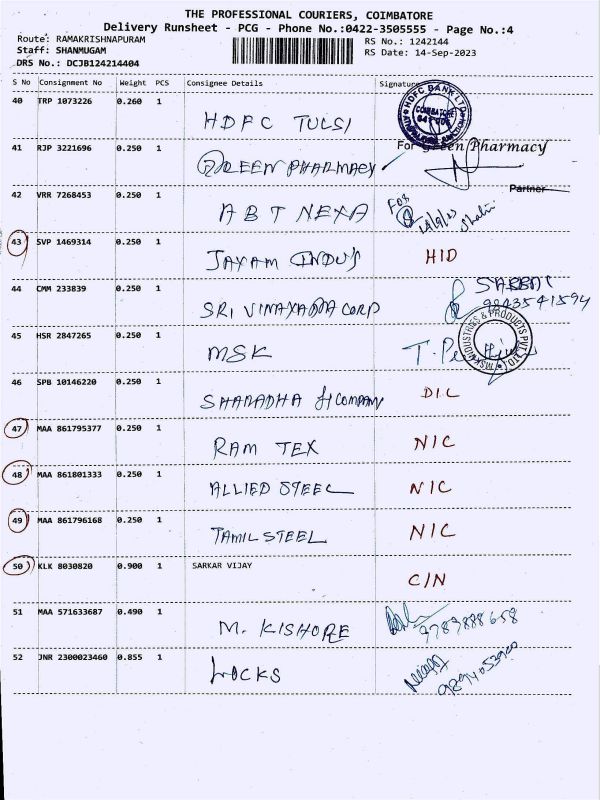 THE PROFESSIONAL COURIERS, COIMBATORE
Delivery Runsheet - PCG - Phone No.:0422-3505555 - Page No.:4
Route: RAMAKRISHNAPURAM
RS No.: 1242144
Staff: SHANMUGAM
RS Date: 14-Sep-2023
DRS No.: DCJB124214404
S No Consignment No Weight PCS Consignee Details Signature
40 TRP 1073226 0.260 1 HDFC TULSI
HDFC BANK LTD
COIMBATORE
41 RJP 3221696 0.250 1 GREEN PHARMACY For Green Pharmacy
Partner
42 VRR 7268453 0.250 1 ABT NEXA FOR
14/9/23
43 SVP 1469314 0.250 1 JAYAM INDU'S HID
44 CMM 233839 0.250 1 SRI VINAYAGA CORP
9843541594
45 HSR 2847265 0.250 1 MSK
MSK INDUSTRIES & PRODUCTS PVT. LTD.
46 SPB 10146220 0.250 1 SHARADHA & COMPANY D.L
47 MAA 861795377 0.250 1 RAM TEX NIC
48 MAA 861801333 0.250 1 ALLIED STEEL NIC
49 MAA 861796168 0.250 1 TAMIL STEEL NIC
50 KLK 8030820 0.900 1 SARKAR VIJAY C/N
51 MAA 571633687 0.490 1 M. KISHORE
9789888658
52 JNR 2300023460 0.855 1 LOCKS